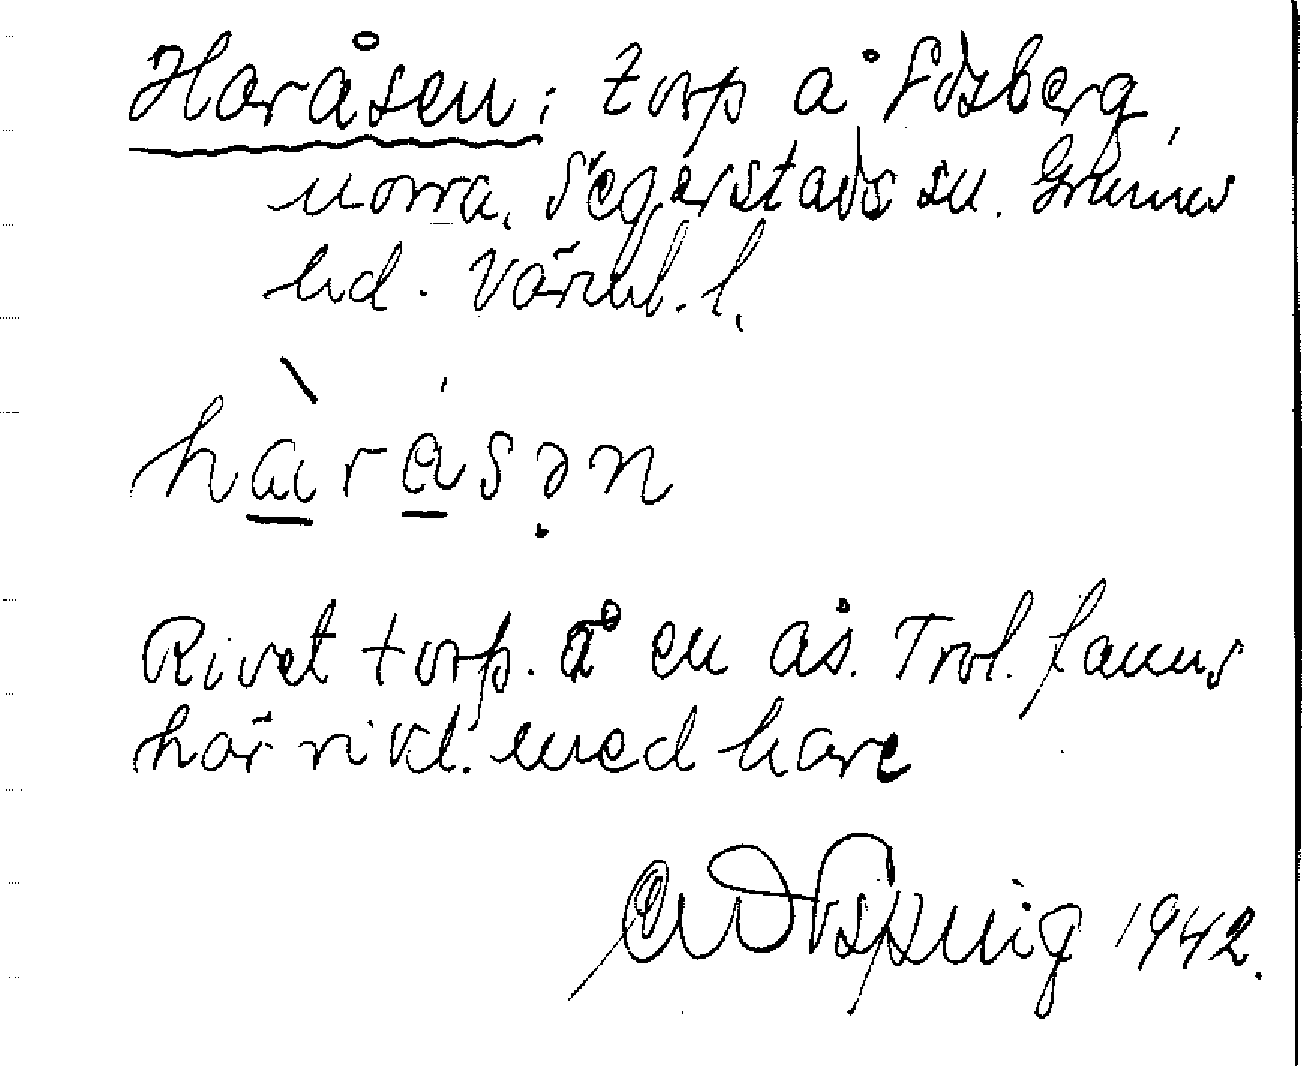 Haråsen: torp å Edsberg,
norra, Segerstads sn. Grums
hd. Värml. l.
hàrásən
Rivet torp. å en ås. Trol. fanns
här rikl. med hare
1942.